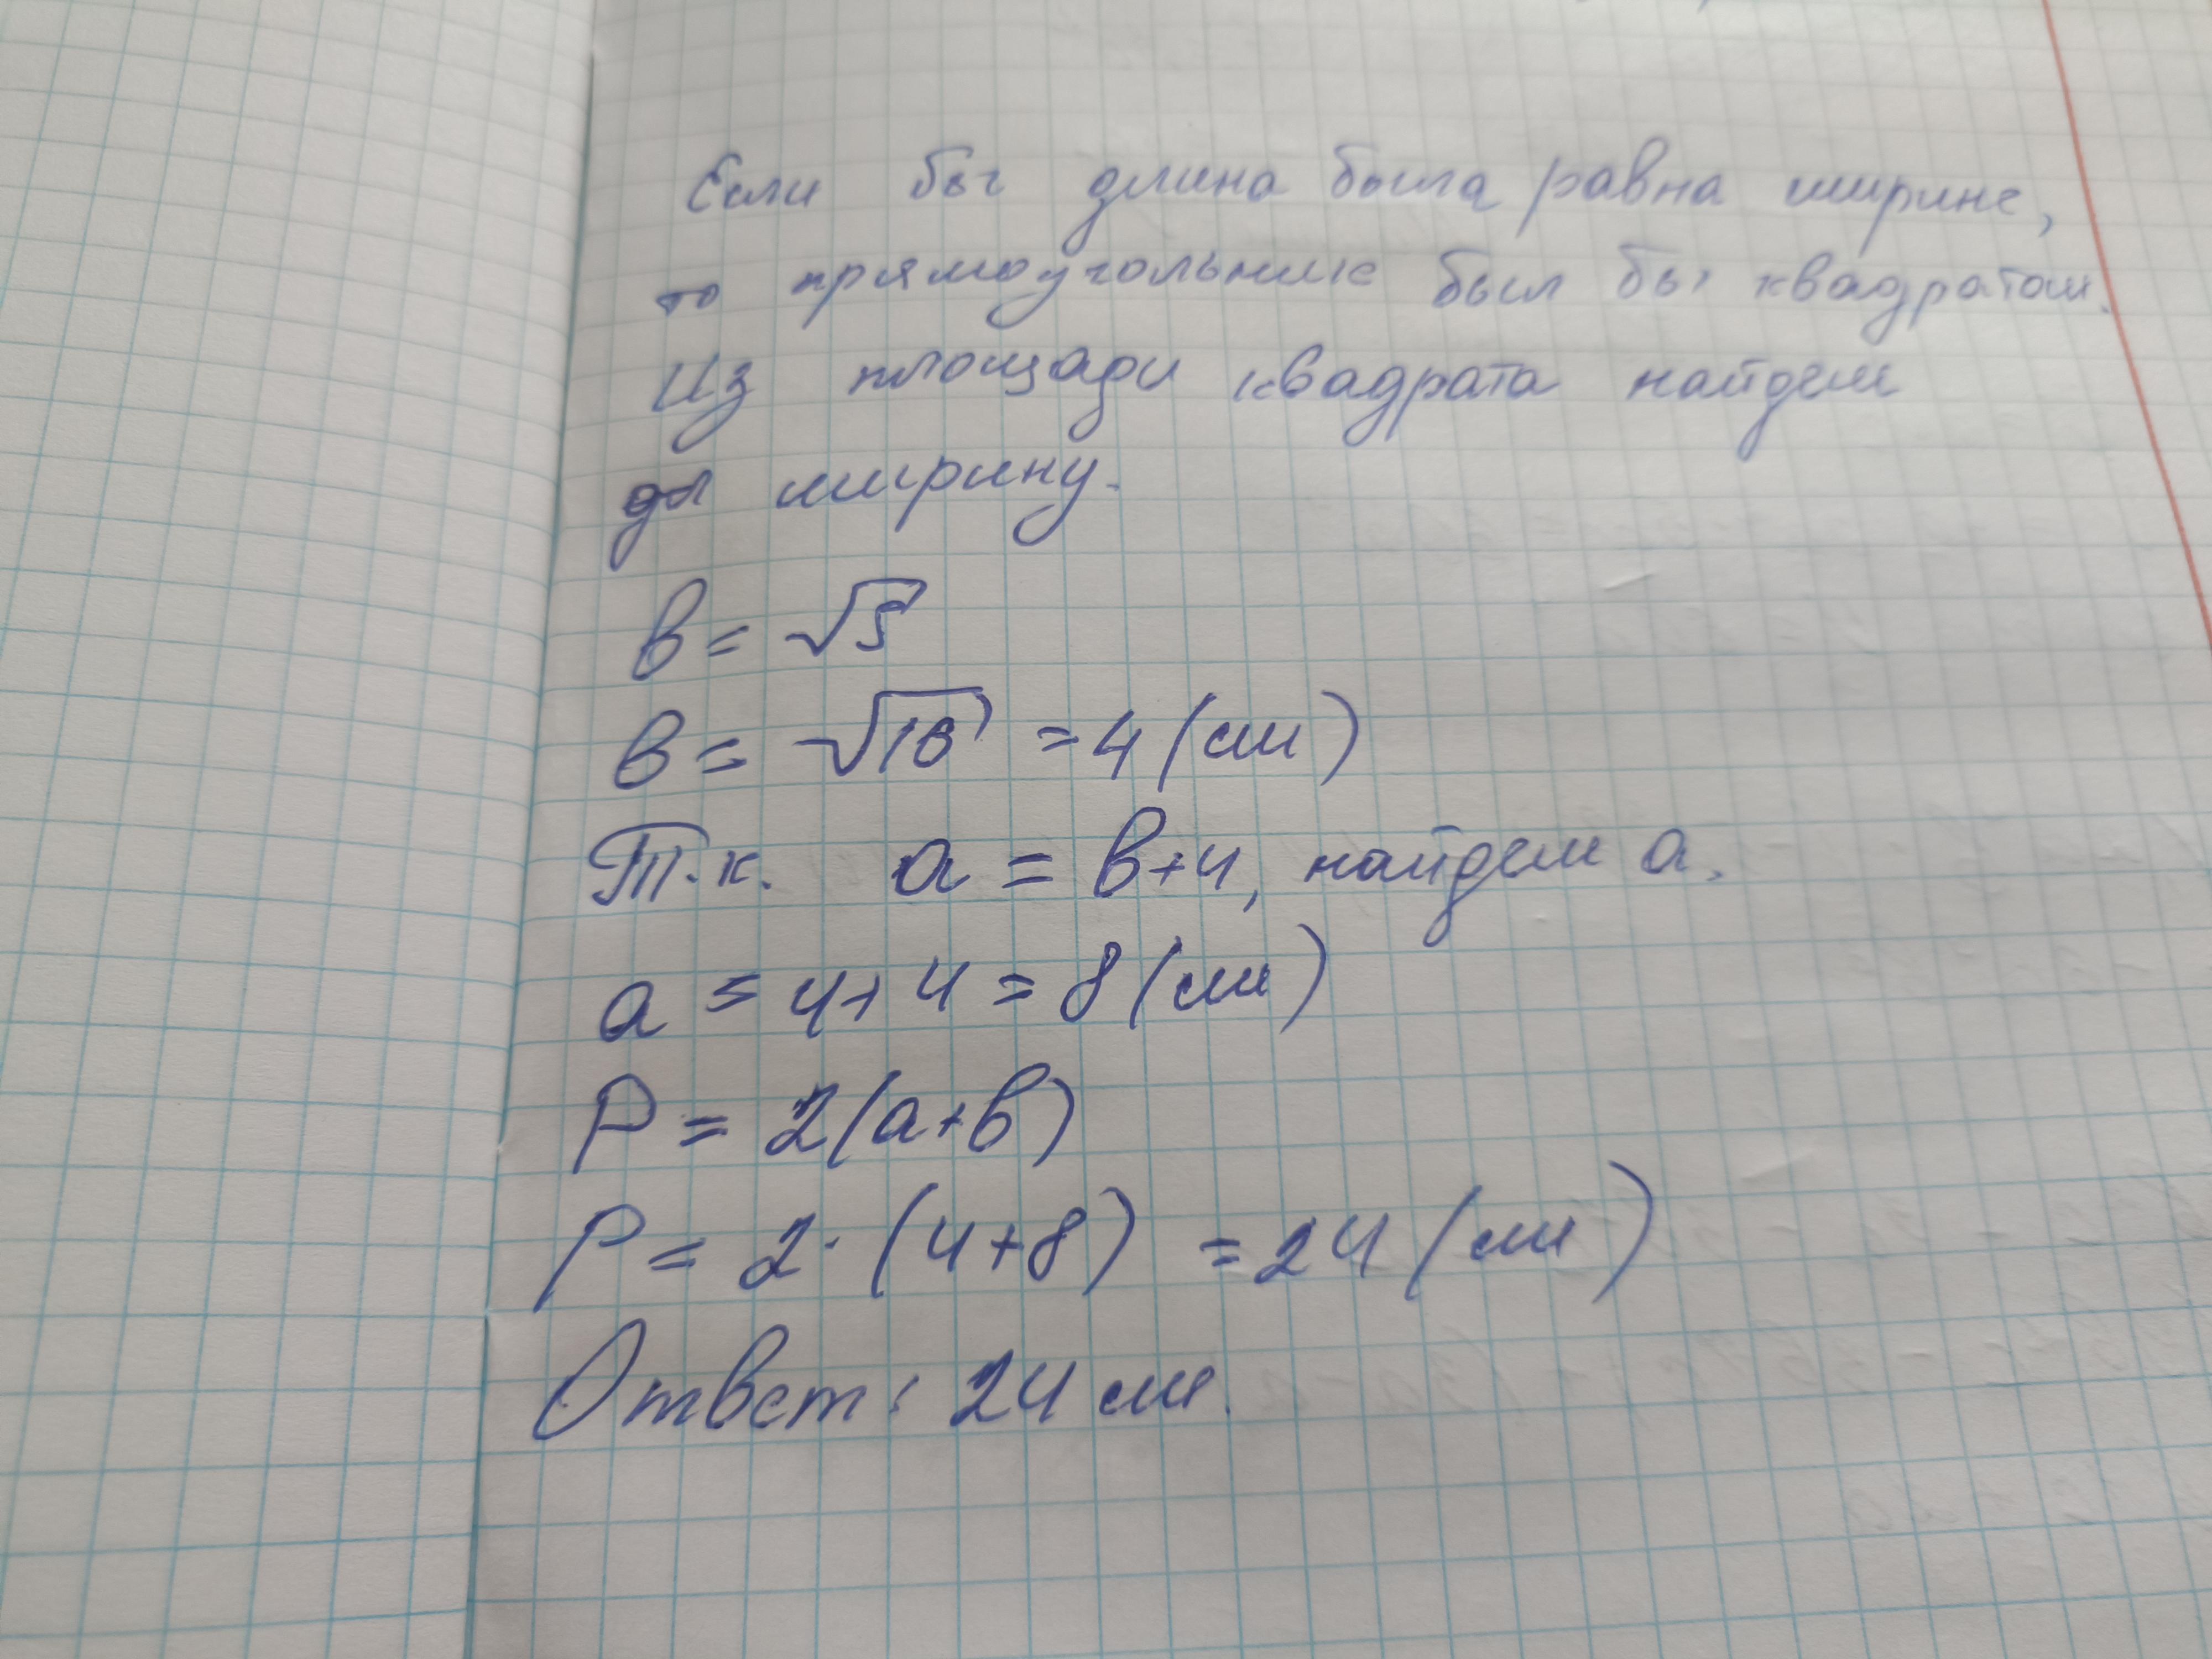 Если бы длина была равна ширине,
то прямоугольник был бы квадратом.
Из площади квадрата найдем
ширину.
в = √S
в = √16 = 4 (см)
Т.к. a = в+4, найдем a.
a = 4+4 = 8 (см)
P = 2(a+в)
P = 2·(4+8) = 24 (см)
Ответ: 24 см.